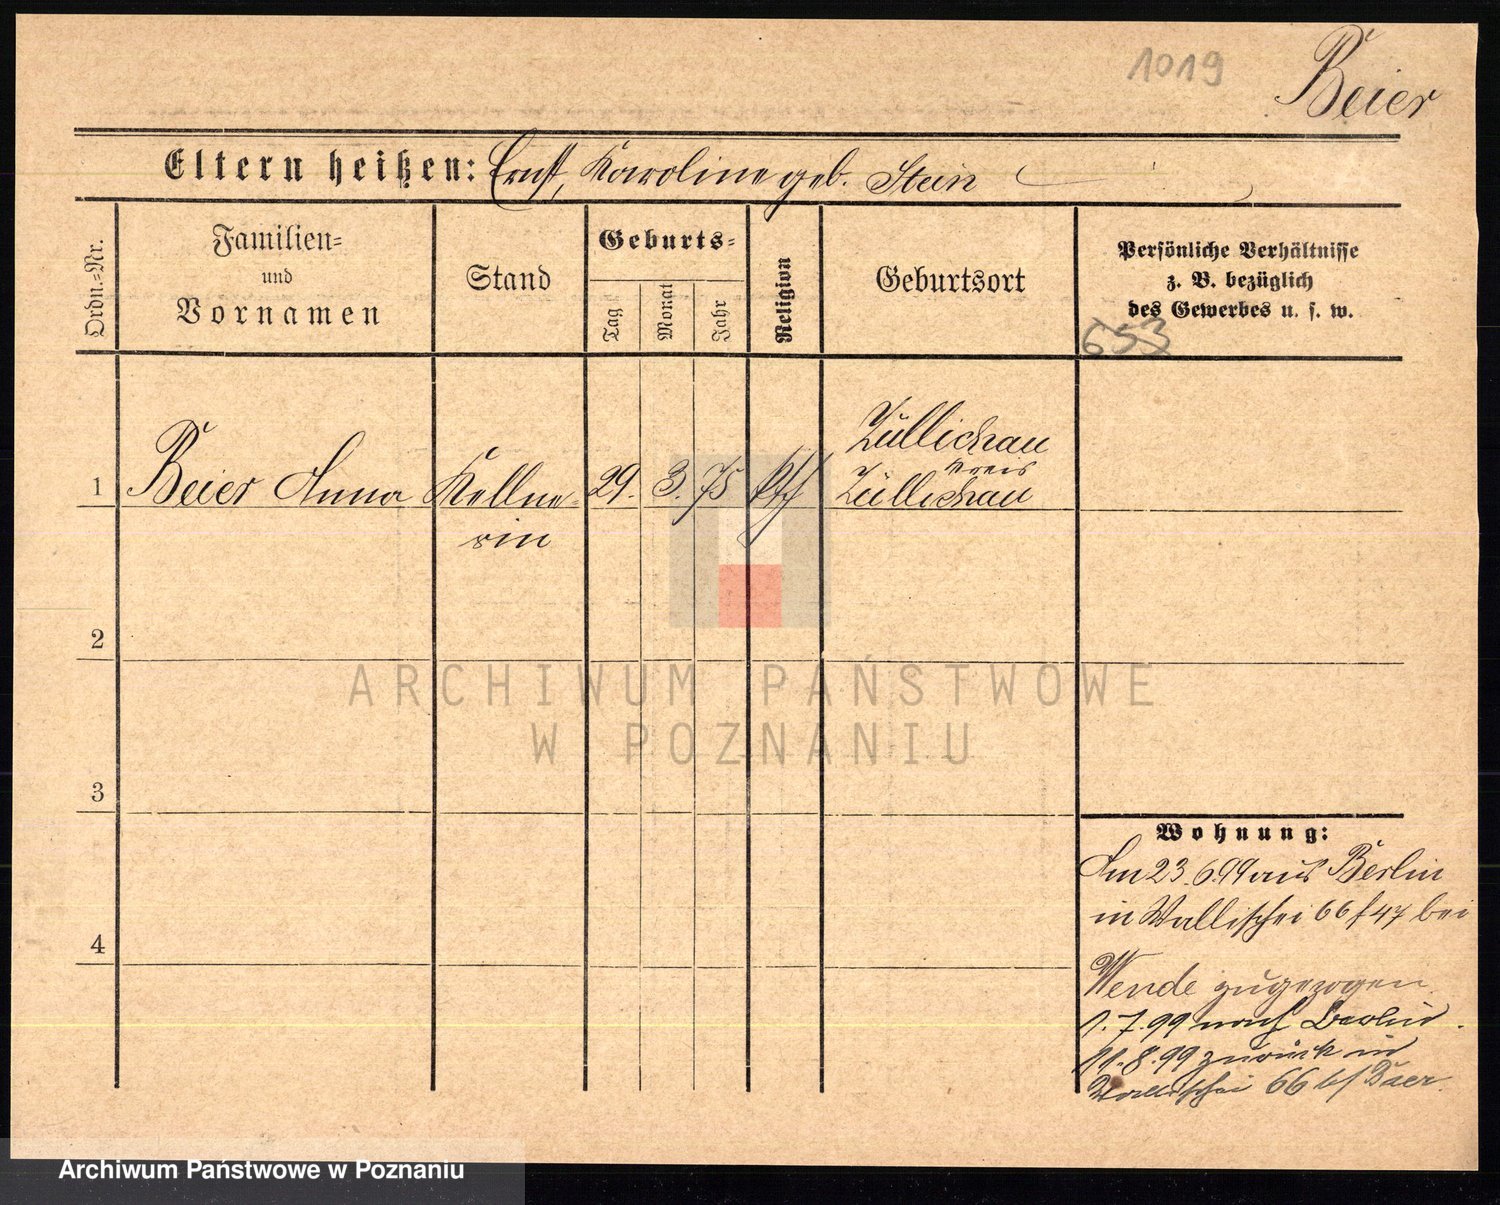 1019
Beier
Eltern heißen: Ernst, Karoline geb. Stein
Ordn.-Nr.
Familien-
und
Vornamen
Stand
Geburts-
Tag
Monat
Jahr
Religion
Geburtsort
Persönliche Verhältnisse
z. B. bezüglich
des Gewerbes u. s. w.
653
1 Beier Anna Kellne-
rin
29. 3. 75
Züllichau
Kreis
Züllichau
2
3
4
Wohnung:
Am 23.6.99 aus Berlin
in Wallischei 66 47 bei
Wende zugezogen.
1.7.99 nach Berlin.
11.8.99 zurück in
Wallischei 66 b/ Baer.
ARCHIWUM PAŃSTWOWE
W POZNANIU
Archiwum Państwowe w Poznaniu